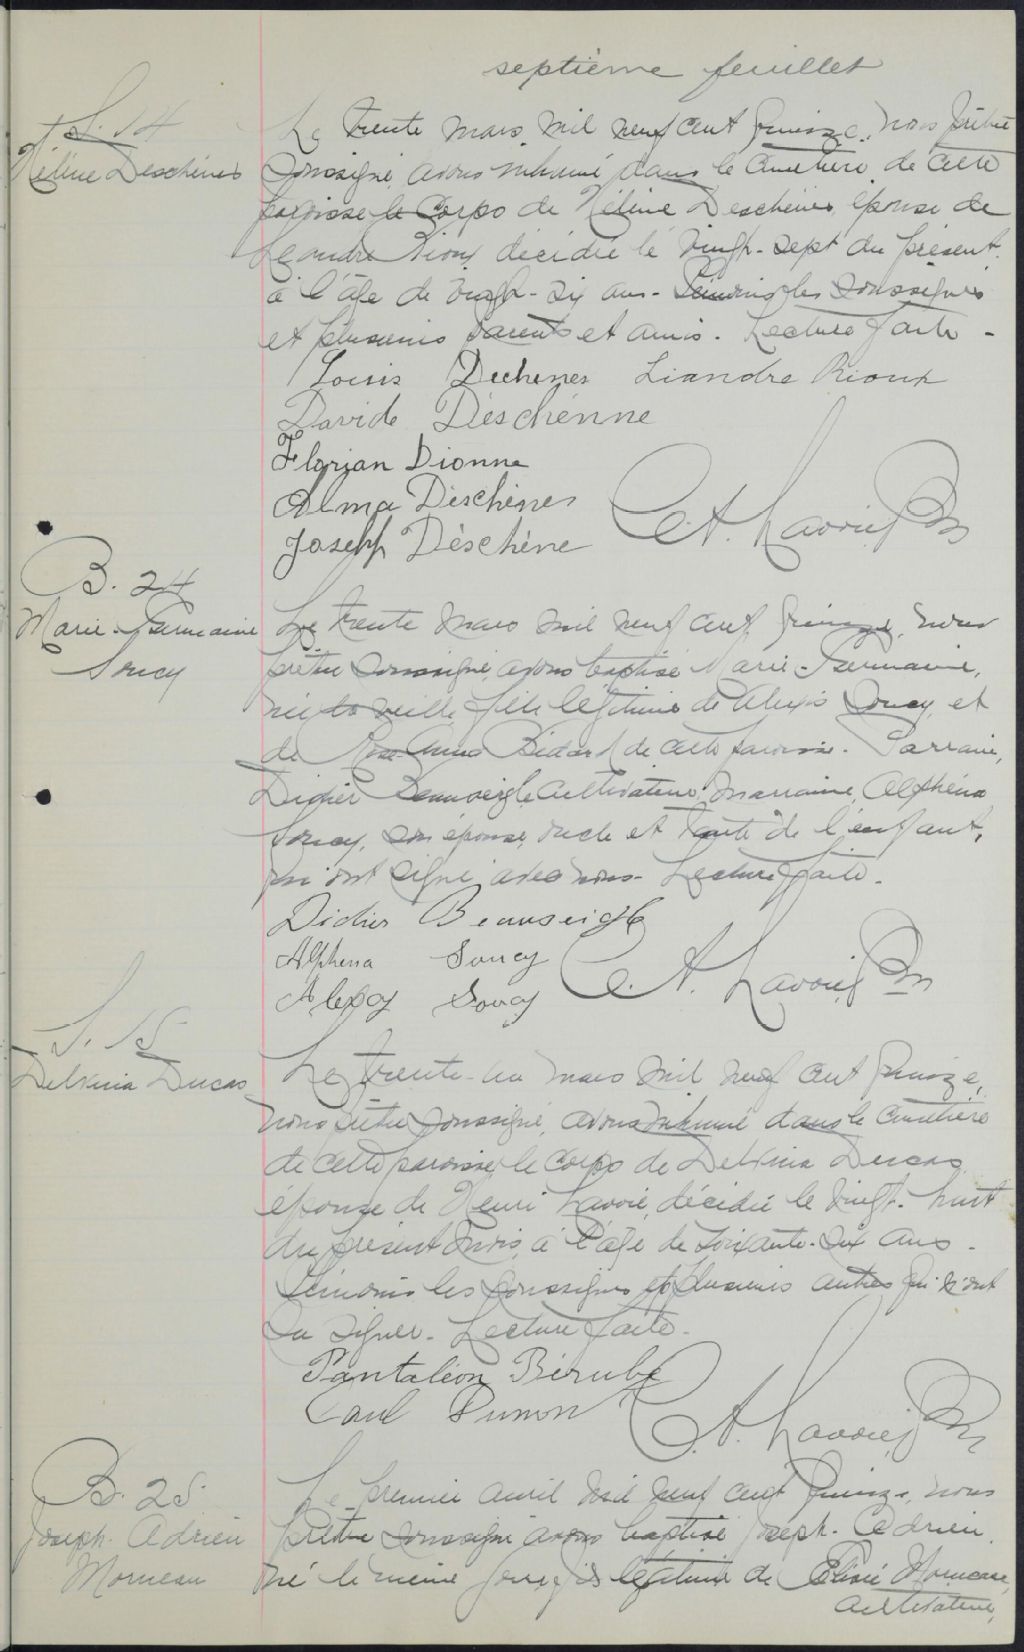 septième feuillet
S. 14
Hélène Deschènes
Le trente mars mil neuf cent quinze, nous prêtre
soussigné, avons inhumé dans le cimetière de cette
paroisse le corps de Hélène Deschènes, épouse de
Léandre Rioux décédée le vingt-sept du présent
à l'âge de vingt-six ans. Témoins les soussignés
et plusieurs parents et amis. Lecture faite.
Louis Dechenes Liandre Rioux
Davide Déschénne
Florian Dionne
Alma Déschènes
Joseph Déschène
C. A. Lavoie, Ptre
B. 24
Marie-Germaine
Soucy
Le trente mars mil neuf cent quinze, nous
prêtre soussigné, avons baptisé Marie-Germaine,
née la veille, fille légitime de Alexis Soucy, et
de Rose-Anna Bédard de cette paroisse. Parrain,
Didier Beauseigle cultivateur, marraine, Alphéna
Soucy, son épouse, oncle et tante de l'enfant,
qui ont signé avec nous. Lecture faite.
Didier Beauseigle
Alphena Soucy
Alexy Soucy
C. A. Lavoie, Ptre
S. 15
Delvina Ducas
Le trente-un mars mil neuf cent quinze,
nous prêtre soussigné, avons inhumé dans le cimetière
de cette paroisse, le corps de Delvina Ducas
épouse de Henri Lavoie, décédée le vingt-huit
du présent mois, à l'âge de soixante-six ans.
Témoins les soussignés et plusieurs autres qui n'ont
su signer. Lecture faite.
Pantaléon Bérubé
Paul Dumon
C. A. Lavoie, Ptre
B. 25
Joseph-Adrien
Morneau
Le premier avril mil neuf cent quinze, nous
prêtre soussigné avons baptisé Joseph-Adrien
né le même jour, fils légitime de Elisée Morneau,
cultivateur,